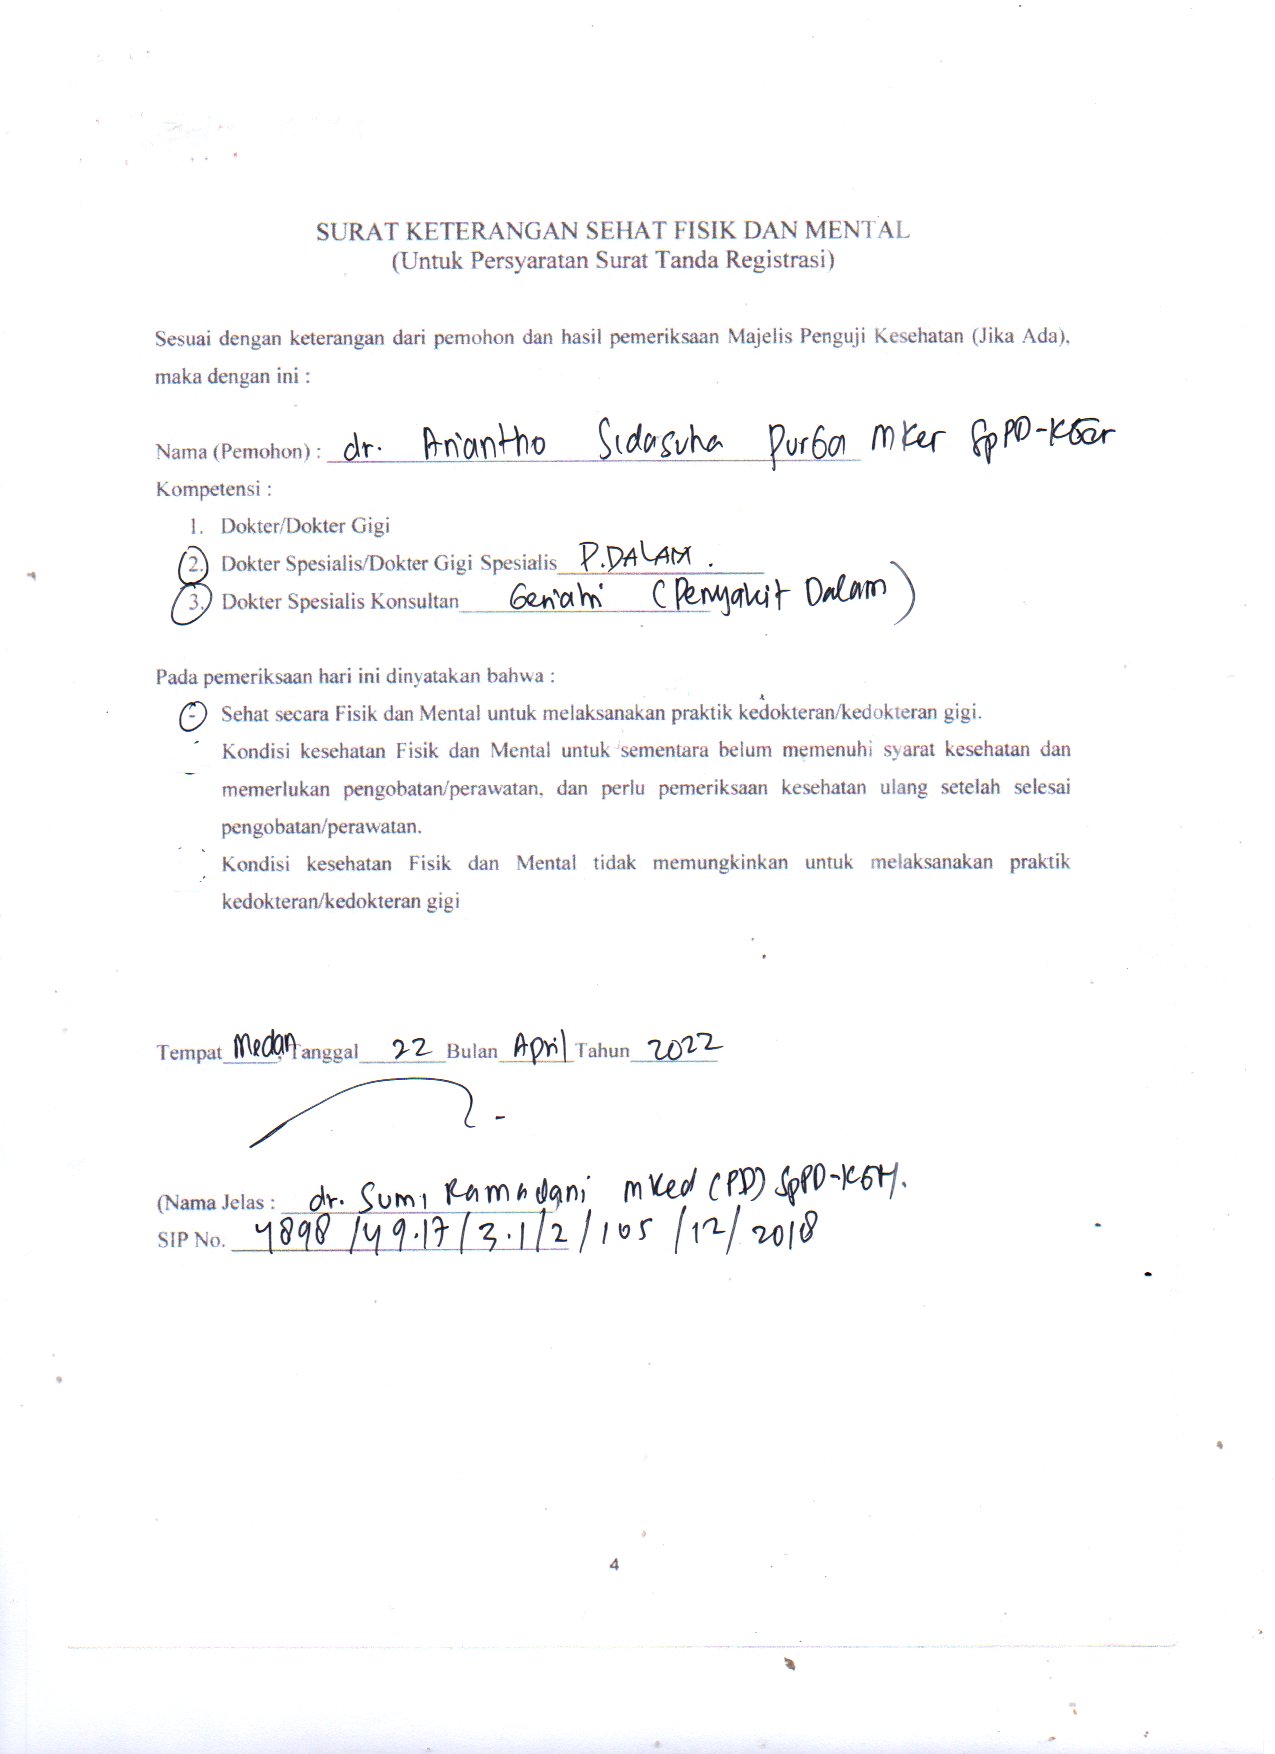 SURAT KETERANGAN SEHAT FISIK DAN MENTAL
(Untuk Persyaratan Surat Tanda Registrasi)
Sesuai dengan keterangan dari pemohon dan hasil pemeriksaan Majelis Penguji Kesehatan (Jika Ada),
maka dengan ini :
Nama (Pemohon) : dr. Ariantho Sidasuha Purba MKer SpPD-KGer
Kompetensi :
1. Dokter/Dokter Gigi
2. Dokter Spesialis/Dokter Gigi Spesialis P.DALAM.
3. Dokter Spesialis Konsultan Geriatri (Penyakit Dalam)
Pada pemeriksaan hari ini dinyatakan bahwa :
- Sehat secara Fisik dan Mental untuk melaksanakan praktik kedokteran/kedokteran gigi.
- Kondisi kesehatan Fisik dan Mental untuk sementara belum memenuhi syarat kesehatan dan
memerlukan pengobatan/perawatan, dan perlu pemeriksaan kesehatan ulang setelah selesai
pengobatan/perawatan.
Kondisi kesehatan Fisik dan Mental tidak memungkinkan untuk melaksanakan praktik
kedokteran/kedokteran gigi
Tempat Medan Tanggal 22 Bulan April Tahun 2022
(Nama Jelas : dr. Sumi Ramadani MKed (PD) SpPD-KGH.
SIP No. 4898/49.17/3.1/2/105/12/2018
4